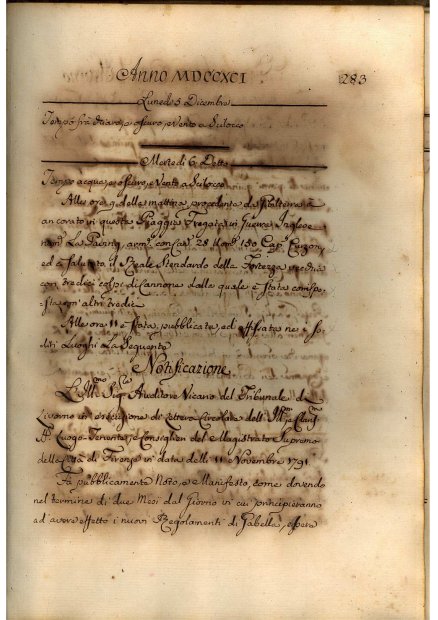 Anno MDCCXCI
283
Lunedì 5 Dicembre
Tempo frà chiaro, e oscuro, e Vento a Scilocco
Martedì 6 Detto
Tempo acqua, e oscuro, e Vento a Scilocco
Alle ore 9 della mattina procedente da Gibilterra è
ancorato in queste Spiaggie Fregata in Guerra Inglese
nom. La Pearl, arm. con Can. 28 150 Cap.
ed à salutato il Reale Stendardo della Fortezza
con tredici colpi di Cannone dalla quale è stata corrispo-
sta con altri tredici
Alle ore 11 è stata pubblicata, ed affissata nei so-
liti Luoghi La Seguente
Notificazione
L'Ill.mo Sig. Auditore Vicario del Tribunale di
Livorno in esecuzione di Lettera Circolare dell'
Luogo Tenente, e Consiglieri del Magistrato Supremo
della Città di Firenze in data delli 11 Novembre 1791
Fà pubblicamente Noto, e Manifesto, come dovendo
nel termine di due Mesi dal Giorno in cui principieranno
ad avere effetto i nuovi Regolamenti di Gabella, essere